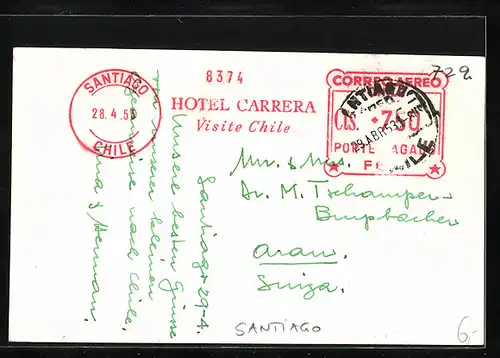 729.
SANTIAGO
28.4.53
CHILE
8374
HOTEL CARRERA
Visite Chile
CORREO AEREO
CTS. 780
PORTE PAGADO
SANTIAGO
29 ABR 53
CHILE
Santiago 29-4.
Unsere besten Grüsse
von unserer kleinen
reise nach Chile.
& Herman.
Mr. & Mrs.
Dr. M. Tschamper-
Brupbacher
Arau.
Suiza.
SANTIAGO
6,-